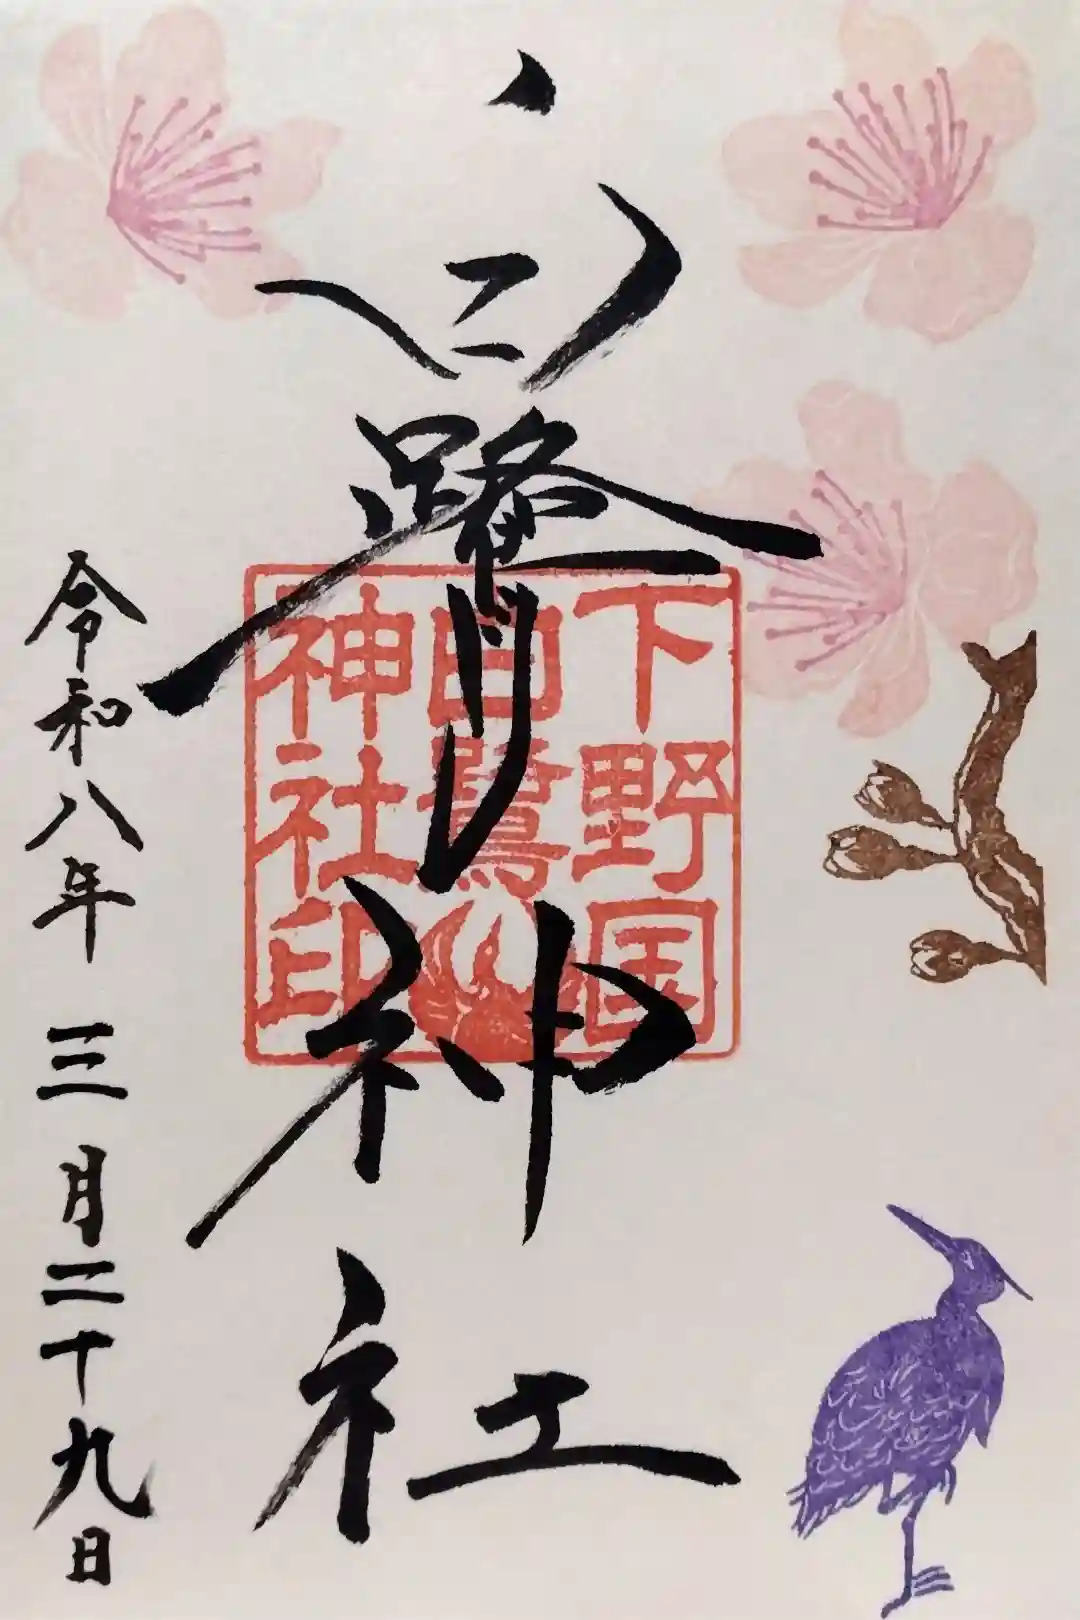 白鷺神社
下野国
白鷺
神社印
令和八年 三月二十九日